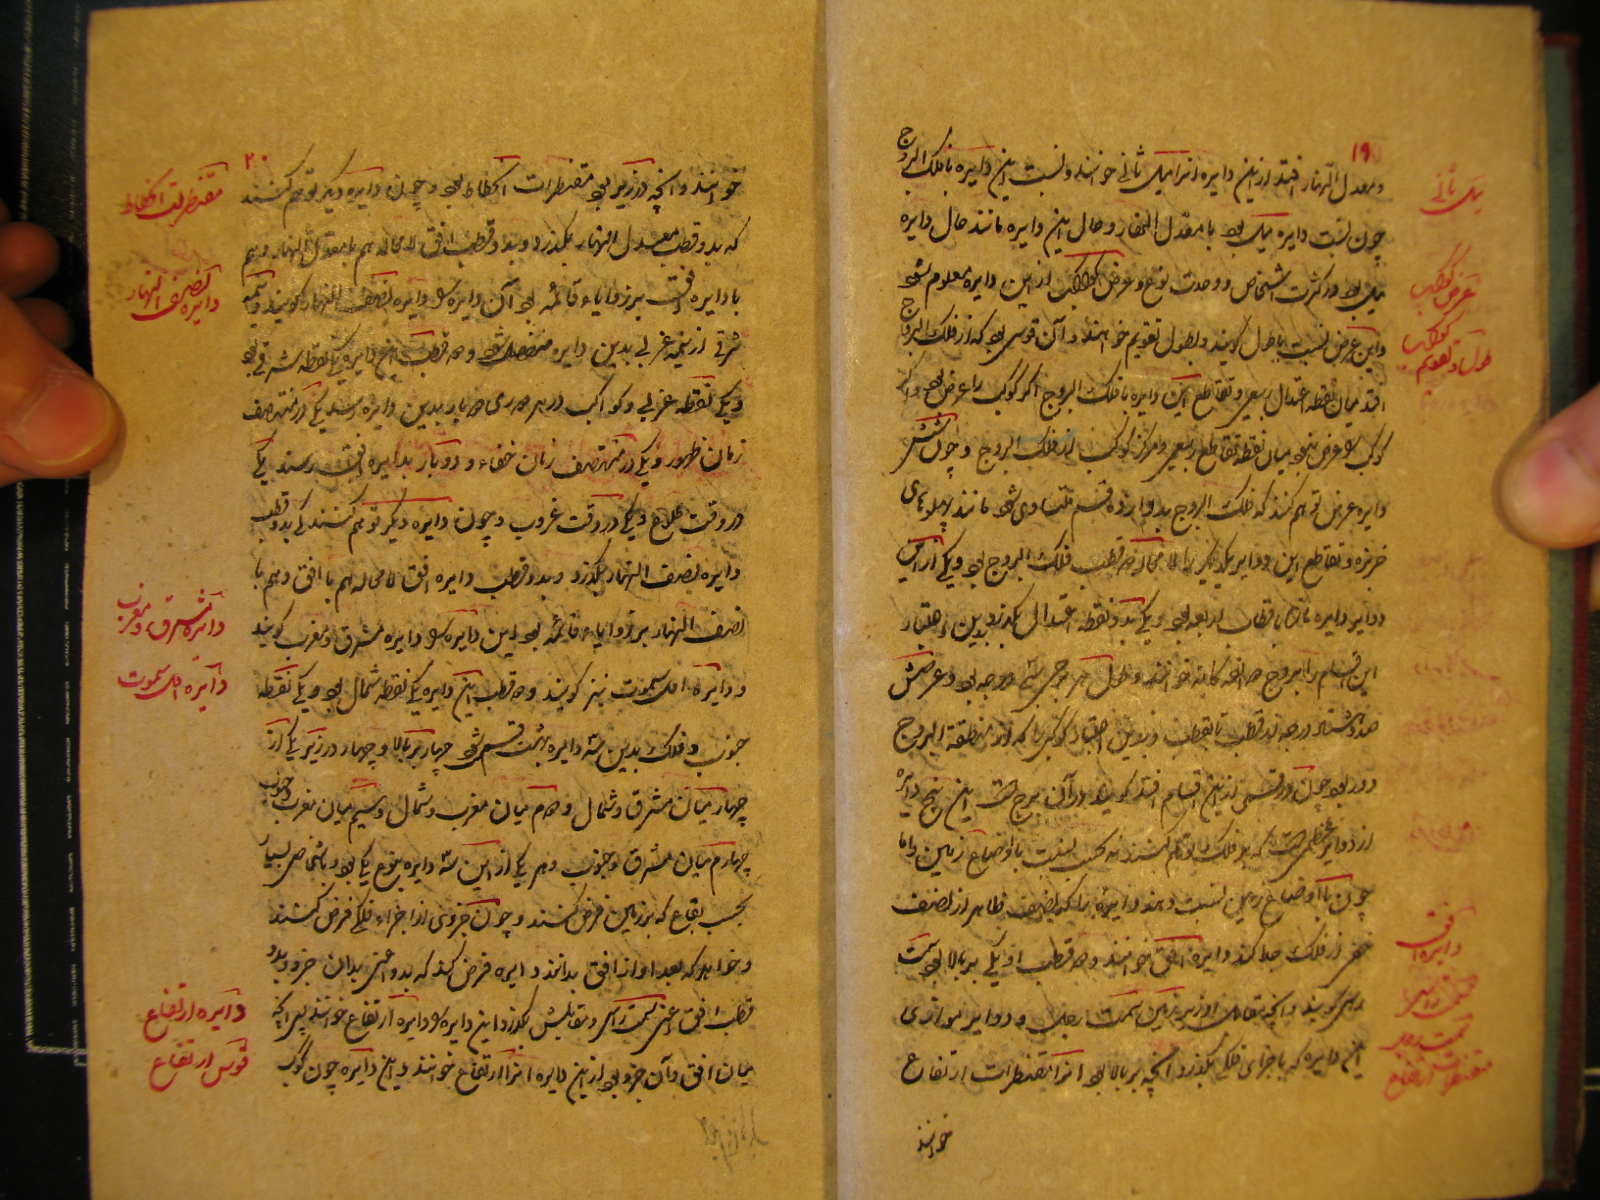 ۱۹
ومعدل النهار افتد ازین دایره انرا میل ثانی خوانند ونسبت این دایره با فلک البروج
چون نسبت دایره میل بود با معدل النهار وحال این دایره مانند حال دایره
میل بود در کثرت اشخاص ووحدت نوع وعرض کواکب ازین دایره معلوم شود
واین عرض نسبت با طول گویند وطول تقویم خوانند وآن قوسی بود که از فلک البروج
افتد میان نقطه اعتدال ربیعی وتقاطع این دایره با فلک البروج اگر کوکب را عرض بود واگر
کوکب عرض نبود میان نقطه تقاطع ربیعی ومرکز کوکب از فلک البروج وچون شش
دایره عرض توهم کنند که فلک البروج بدوازده قسم متساوی شود مانند پهلوهای
خربزه وتقاطع این دوایر یکدیگر را لا محاله دو قطب فلک البروج بود ویکی ازین
دوایر دایره ماره باقطاب اربعه بود ویکی بدو نقطه اعتدال بگذرد وبدین اعتبار
این اقسام را بروج دوازده گانه خوانند وطول هر برجی سی درجه بود وعرضش
صد وهشتاد درجه از قطب تا قطب وبدین اعتبار کوکبی را که از منطقة البروج
دور بود چون در قسمی ازین اقسام افتد گویند در آن برج است این پنج دایره
از دوایر عظمی است که بر فلک توهم کنند نه بحسب نسبت با اوضاع زمین واما
چون با اوضاع زمین نسبت دهند دایره را که نصف ظاهر از نصف
خفی از فلک جدا کند دایره افق خوانند ودو قطب او یکی بر بالا بود سمت
راس گویند وانچه مقابل او زیر زمین سمت رجل ودوایر موازی
این دایره که باجزای فلکی بگذرد انچه بر بالا بود انرا مقنطرات ارتفاع
خوانند
میل ثانی
عرض کوکب
طول کوکب وتقویم
دایره افق
سمت راس
سمت رجل
مقنطرات ارتفاع
۲۰
خوانند وانچه در زیر بود مقنطرات انحطاط بود وچون دایره دیگر توهم کنند
که بدو قطب معدل النهار بگذرد وبدو قطب افق لا محاله هم با معدل النهار وهم
با دایره افق بر زوایاء قائمه بود آن دایره را دایره نصف النهار گویند ونیمه
شرقی از نیمه غربی بدین دایره منفصل شود ودو قطب این دایره یکی نقطه شرقی بود
ویکی نقطه غربی وکواکب در هر دوری دو بار بدین دایره رسد یکی در منتصف
زمان ظهور ویکی در منتصف زمان خفاء ودو بار بدایره افق رسند یکی
در وقت طلوع ویکی در وقت غروب وچون دایره دیگر توهم کنند که بدو قطب
دایره نصف النهار بگذرد وبدو قطب دایره افق لا محاله هم با افق وهم با
نصف النهار بر زوایاء قائمه بود این دایره را دایره مشرق ومغرب گویند
ودایره اول سموت نیز گویند ودو قطب این دایره یکی نقطه شمال بود ویکی نقطه
جنوب وفلک بدین سه دایره بهشت قسم شود چهار بر بالا وچهار در زیر یکی از
چهار میان مشرق وشمال ودوم میان مغرب وشمال وسیم میان مغرب وجنوب
چهارم میان مشرق وجنوب وهر یکی از این سه دایره بنوع یکی بود وباشخاص بسیار
بحسب بقاع که بر زمین فرض کنند وچون جزوی از اجزاء فلکی فرض کنند
وخواهد که بعد او از افق بدانند دایره فرض کند که بدو اعنی بدان جزو وبدو
قطب افق اعنی سمت راس ومقابلش بگذرد این دایره را دایره ارتفاع خوانند پس آنچه
میان افق وآن جزو بود ازین دایره انرا ارتفاع خوانند واین دایره چون کوکب
مقنطرات انحطاط
دایره نصف النهار
دایره مشرق ومغرب
دایره اول سموت
دایره ارتفاع
قوس ارتفاع